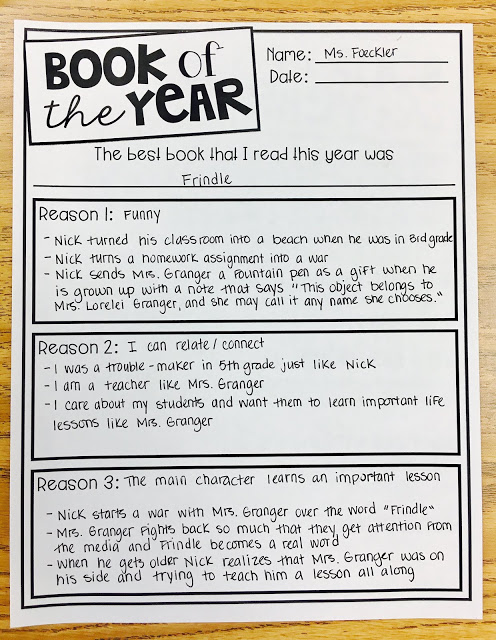 BOOK of
the YEAR
Name: Ms. Foeckler
Date:
The best book that I read this year was
Frindle
Reason 1: Funny
- Nick turned his classroom into a beach when he was in 3rd grade
- Nick turns a homework assignment into a war
- Nick sends Mrs. Granger a fountain pen as a gift when he
is grown up with a note that says "This object belongs to
Mrs. Lorelei Granger, and she may call it any name she chooses."
Reason 2: I can relate / connect
- I was a trouble-maker in 5th grade just like Nick
- I am a teacher like Mrs. Granger
- I care about my students and want them to learn important life
lessons like Mrs. Granger
Reason 3: The main character learns an important lesson
- Nick starts a war with Mrs. Granger over the word "Frindle"
- Mrs. Granger fights back so much that they get attention from
the media and Frindle becomes a real word
- When he gets older Nick realizes that Mrs. Granger was on
his side and trying to teach him a lesson all along